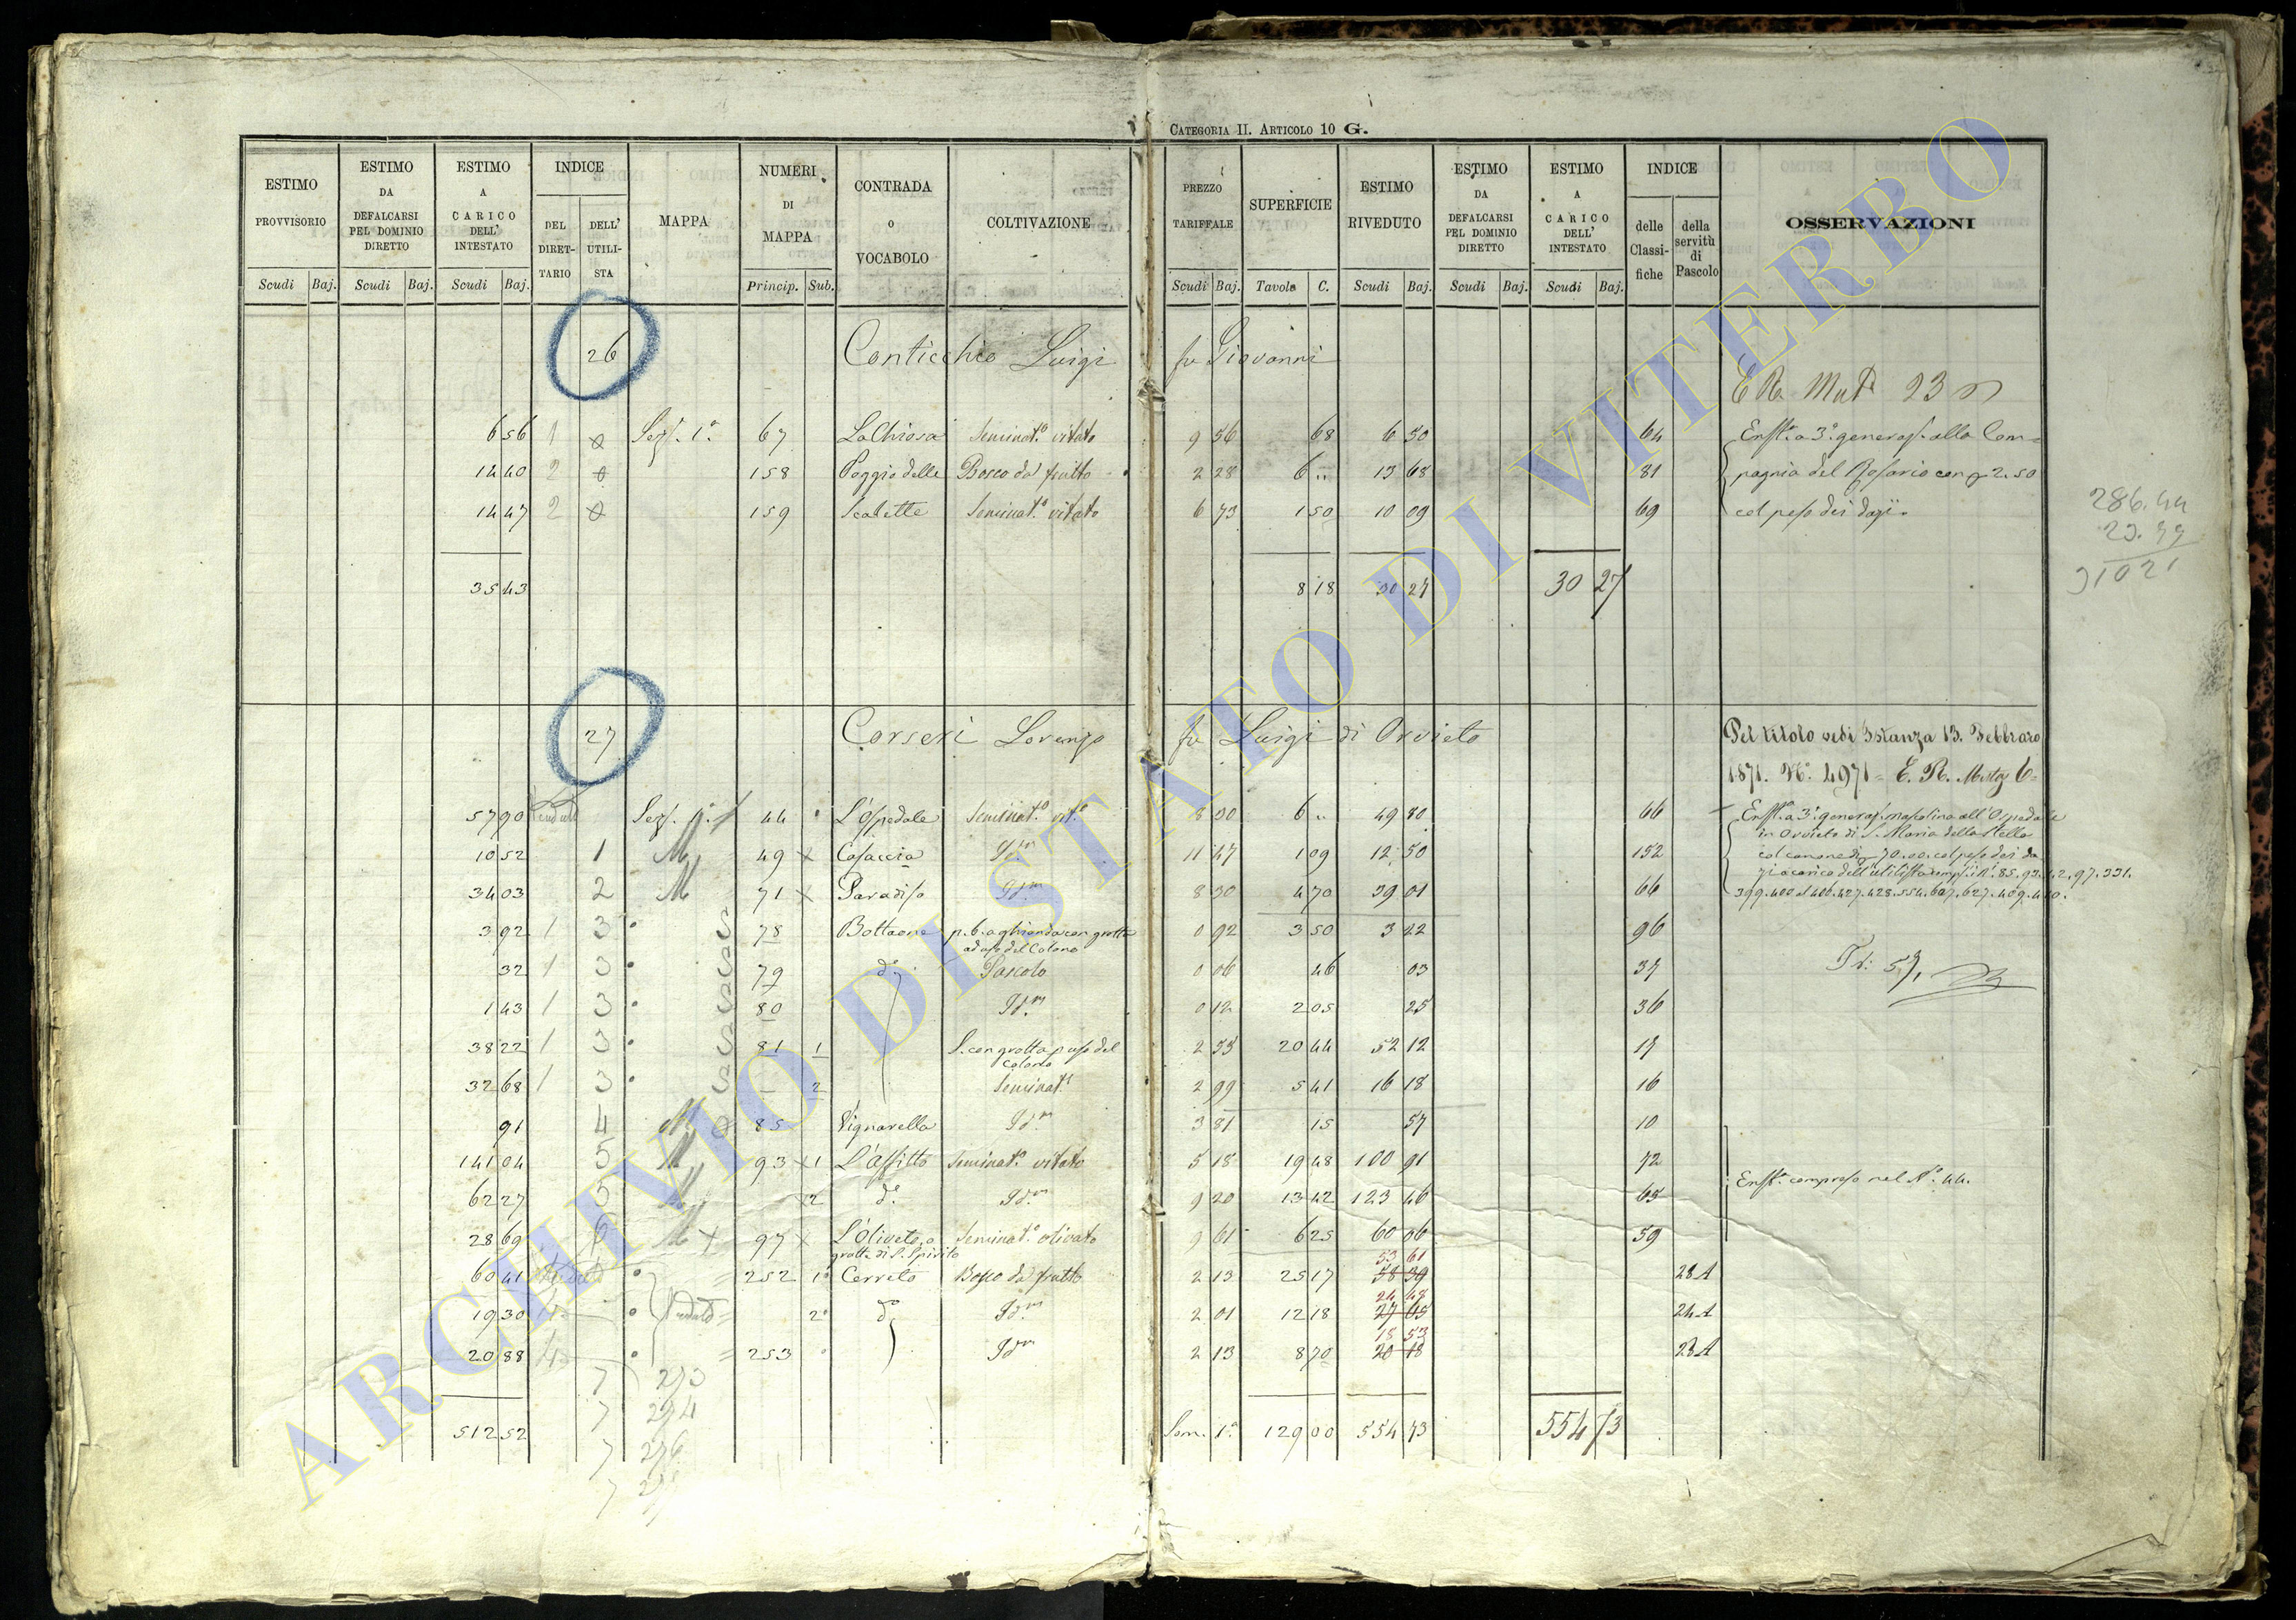 CATEGORIA II. ARTICOLO 10 G.
ESTIMO PROVVISORIO Scudi Baj.
ESTIMO DA DEFALCARSI PEL DOMINIO DIRETTO Scudi Baj.
ESTIMO A CARICO DELL' INTESTATO Scudi Baj.
INDICE DEL DIRETTARIO DELL' UTILISTA
MAPPA
NUMERI DI MAPPA Princip. Sub.
CONTRADA o VOCABOLO
COLTIVAZIONE
PREZZO TARIFFALE Scudi Baj.
SUPERFICIE Tavole C.
ESTIMO RIVEDUTO Scudi Baj.
ESTIMO DA DEFALCARSI PEL DOMINIO DIRETTO Scudi Baj.
ESTIMO A CARICO DELL' INTESTATO Scudi Baj.
INDICE delle Classifiche della servitù di Pascolo
OSSERVAZIONI
26 Conticchio Luigi fu Giovanni
E R. Mut 23
6 56 1 Sez. 1.a 67 La Chiosa Seminat.o vitato 9 56 68 6 50 64 Enft.a a 3.a generaz. alla Com=
14 40 2 158 Poggio delle Bosco da frutto 2 28 6 .. 13 68 81 pagnia del Rosario con 2.50
14 47 2 159 Scalette Seminat.o vitato 6 73 1 50 10 09 69 col peso dei dazi.
286.44
35 43 8 18 30 27 30 27
27 Corseri Lorenzo fu Luigi di Orvieto
Pel titolo vedi Istanza 13. Febbraro
1871. N.o 4971= E. R. Mutaz 6=
57 90 Venduto Sez. 1.a 44 L'Ospedale Seminat.o vit.o 8 30 6 .. 49 80 66 Enft.a a 3.a generaz. mascolina all'Ospedale
in Orvieto di S. Maria della Stella
10 52 1 M 49 x Casaccia Id.m 11 47 1 09 12 50 152 col canone di 70.00 col peso dei da
34 03 2 M 71 x Paradiso Id.m 8 30 4 70 39 01 66 zi a carico dell'utilista
3 92 1 3 78 Bottaone p. b. a ghianda con grotta ad uso del Colono 0 92 3 50 3 22 96
32 1 3 79 d.o Pascolo 0 06 46 03 37
Tr: 57,
1 43 1 3 80 Id.m 0 12 2 05 25 36
38 22 1 3 81 1 S. con grotta p uso del Colono 2 55 20 44 52 12 17
32 68 1 3 — 2 Seminat.o 2 99 5 41 16 18 16
91 4 M 85 Vignarella Id.m 3 81 15 57 10
141 04 5 M 93 x 1 L'Affitto Seminat.o vitato 5 18 19 48 100 91 72
62 27 5 M x 2 d.o Id.m 9 20 13 42 123 46 65 Enft. compreso nel N.o 44.
28 69 6 M x 97 x L'Oliveto, o grotte di S. Spirito Seminat.o olivato 9 61 6 25 60 06 59
53 61
60 41 Venduto 252 1.o Cerreto Bosco da frutto 2 13 25 17 58 39 28 A
24 48
19 30 Venduto 2.o d.o Id.m 2 01 12 18 27 05 24 A
18 53
20 88 253 Id.m 2 13 8 70 20 18 28 A
7 273
7 274
512 52 Som. 1.a 129 00 554 73 554 73
7 276
ARCHIVIO DI STATO DI VITERBO